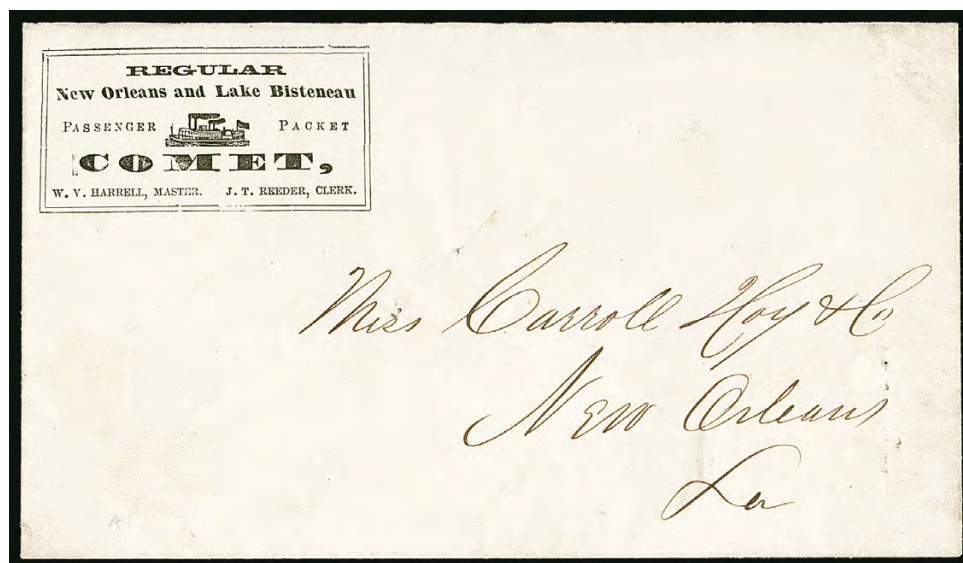 REGULAR
New Orleans and Lake Bisteneau
PASSENGER PACKET
COMET,
W. V. HARRELL, MASTER. J. T. REEDER, CLERK.
Miss Carroll Hoy & Co
New Orleans
La
A1